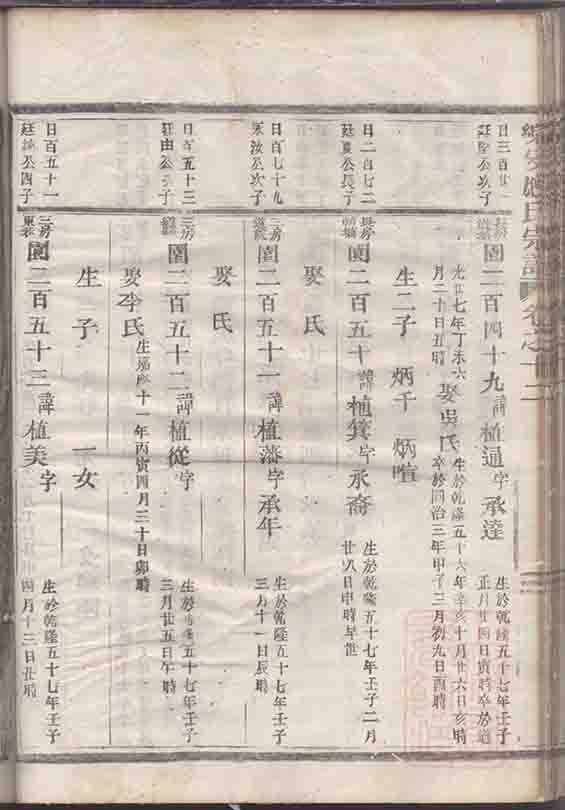 宗譜 卷之十二
日三百廿
公次子
長房
園二百四十九諱植通字承達
生於乾隆五十七年壬子正月廿四日寅時卒於道
光廿七年丁未六月二十日丑時
娶吳氏
生於乾隆五十六年辛亥十月廿六日亥時
卒於同治三年甲子三月初九日酉時
生二子 炳千 炳喧
日二百七二
廷 公長子
長房
園二百五十諱植箕字永裔
生於乾隆五十七年壬子二月廿八日申時早世
娶氏
日百七十九
汝公次子
三房
園二百五十一諱植藩字承年
生於乾隆五十七年壬子三月十一日辰時
娶氏
日百五十三
廷由公 子
三房
園二百五十二諱植從字
生於乾隆五十七年壬子三月廿五日午時
娶李氏
生嘉慶十一年丙寅四月三十日卯時
生一子 一女
日百五十一
廷 公四子
三房
園二百五十三諱植美字
生於乾隆五十七年壬子四月十三日丑時